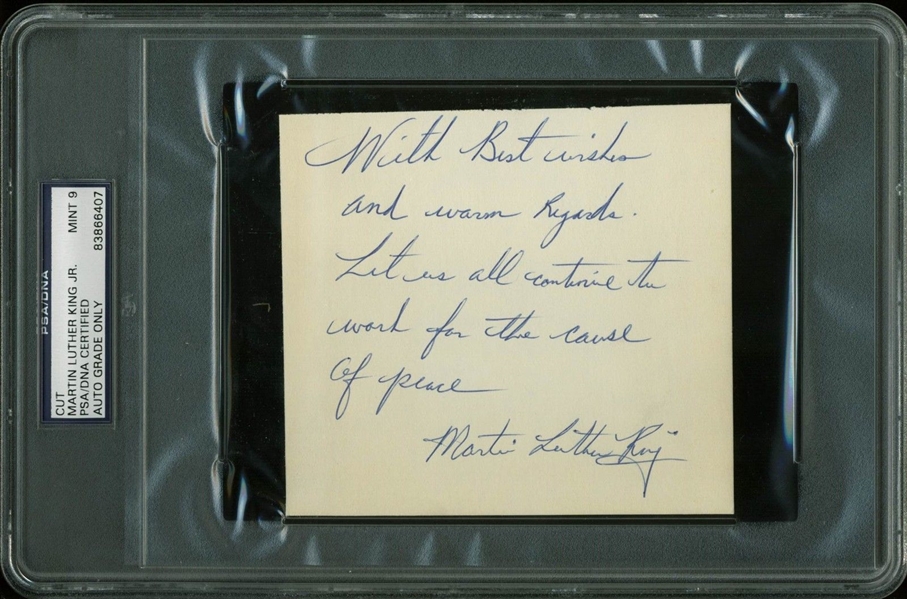 With Best wishes
and warm Regards.
Let us all continue the
work for the cause
of peace
Martin Luther King
PSA/DNA
CUT
MARTIN LUTHER KING JR.
PSA/DNA CERTIFIED
AUTO GRADE ONLY
MINT 9
83866407